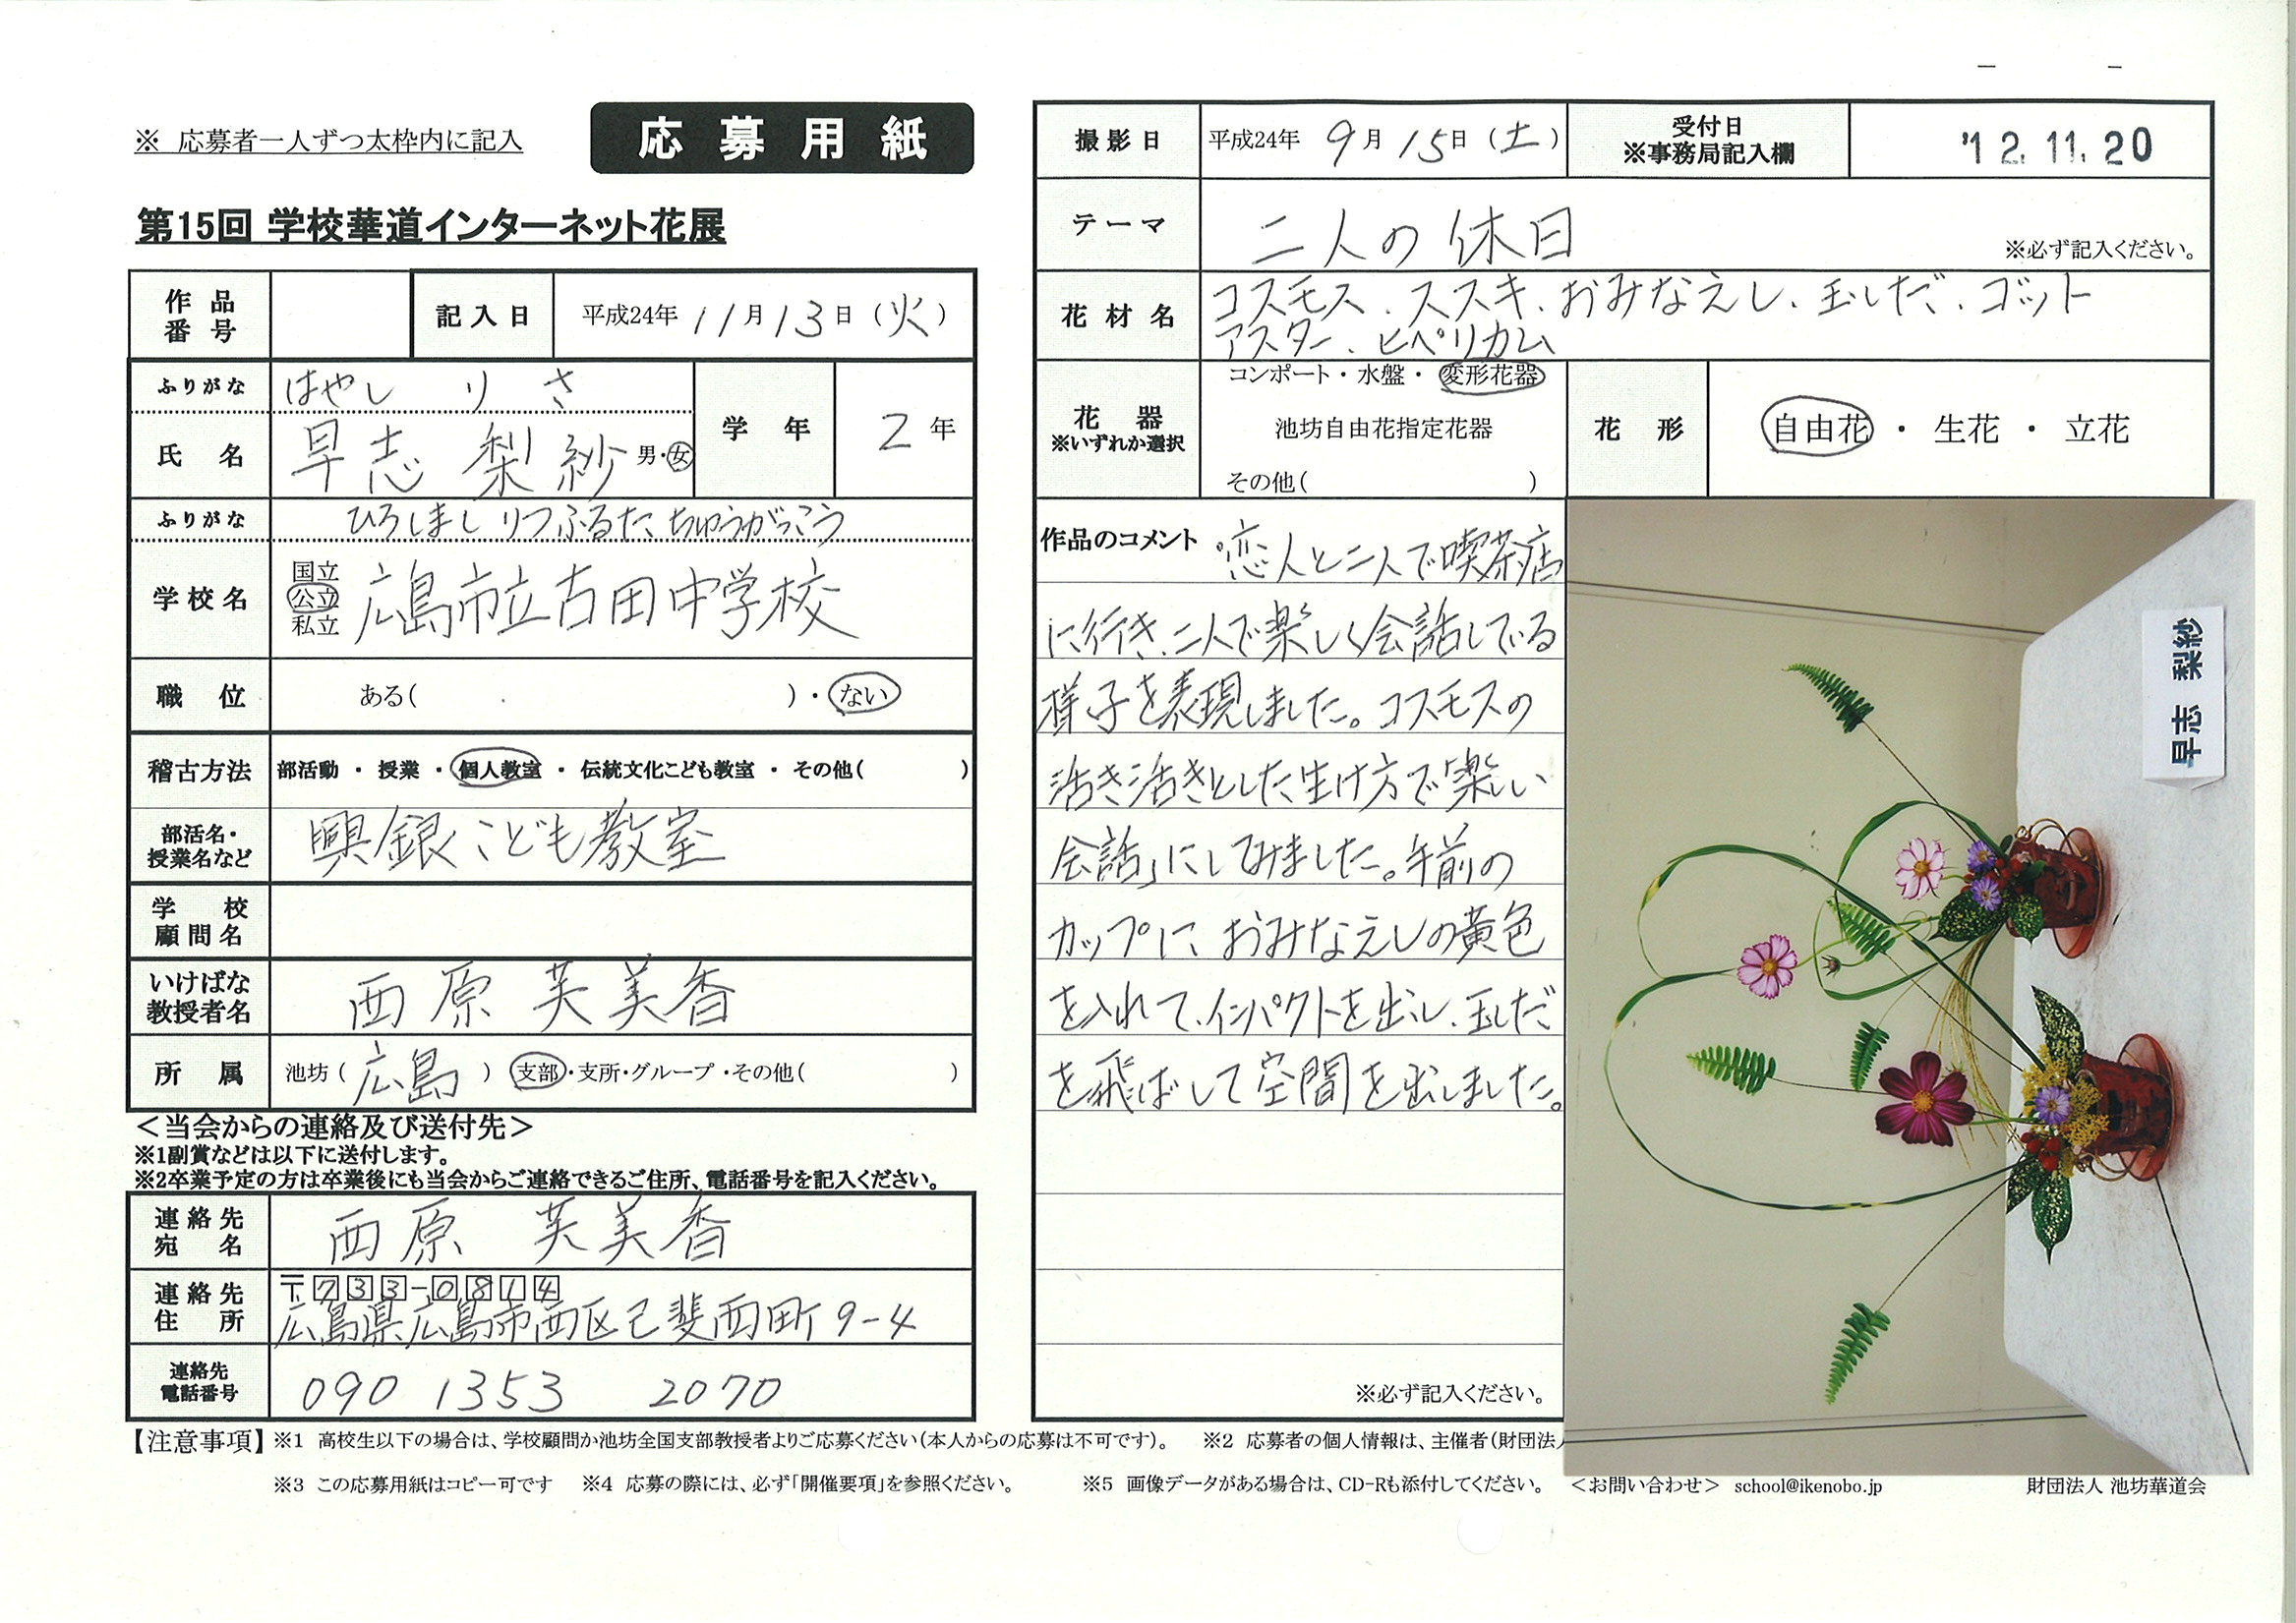 ※ 応募者一人ずつ太枠内に記入
応募用紙
第15回 学校華道インターネット花展
作品番号
記入日 平成24年 11月13日(火)
ふりがな はやし りさ
氏名 早志 梨紗 男・女
学年 2年
ふりがな ひろしましりつふるたちゅうがっこう
学校名 国立 公立 私立 広島市立古田中学校
職位 ある( )・ない
稽古方法 部活動・授業・個人教室・伝統文化こども教室・その他( )
部活名・授業名など 興銀こども教室
学校顧問名
いけばな教授者名 西原 芙美香
所属 池坊(広島)支部・支所・グループ・その他( )
<当会からの連絡及び送付先>
※1副賞などは以下に送付します。
※2卒業予定の方は卒業後にも当会からご連絡できるご住所、電話番号を記入ください。
連絡先宛名 西原 芙美香
連絡先住所 〒733-0814
広島県広島市西区己斐西町9-4
連絡先電話番号 090 1353 2070
撮影日 平成24年 9月15日(土)
受付日
※事務局記入欄
'12.11.20
テーマ 二人の休日 ※必ず記入ください。
花材名 コスモス、ススキ、おみなえし、玉しだ、ゴット
アスター、ヒペリカム
花器 ※いずれか選択
コンポート・水盤・変形花器
池坊自由花指定花器
その他( )
花形 自由花・生花・立花
作品のコメント 恋人と二人で喫茶店
に行き、二人で楽しく会話している
様子を表現しました。コスモスの
活き活きとした生け方で「楽しい
会話」にしてみました。午前の
カップに、おみなえしの黄色
を入れて、インパクトを出し、玉しだ
を飛ばして空間を出しました。
※必ず記入ください。
早志 梨紗
【注意事項】 ※1 高校生以下の場合は、学校顧問か池坊全国支部教授者よりご応募ください(本人からの応募は不可です)。 ※2 応募者の個人情報は、主催者(財団法人
※3 この応募用紙はコピー可です ※4 応募の際には、必ず「開催要項」を参照ください。 ※5 画像データがある場合は、CD-Rも添付してください。 <お問い合わせ> school@ikenobo.jp 財団法人 池坊華道会